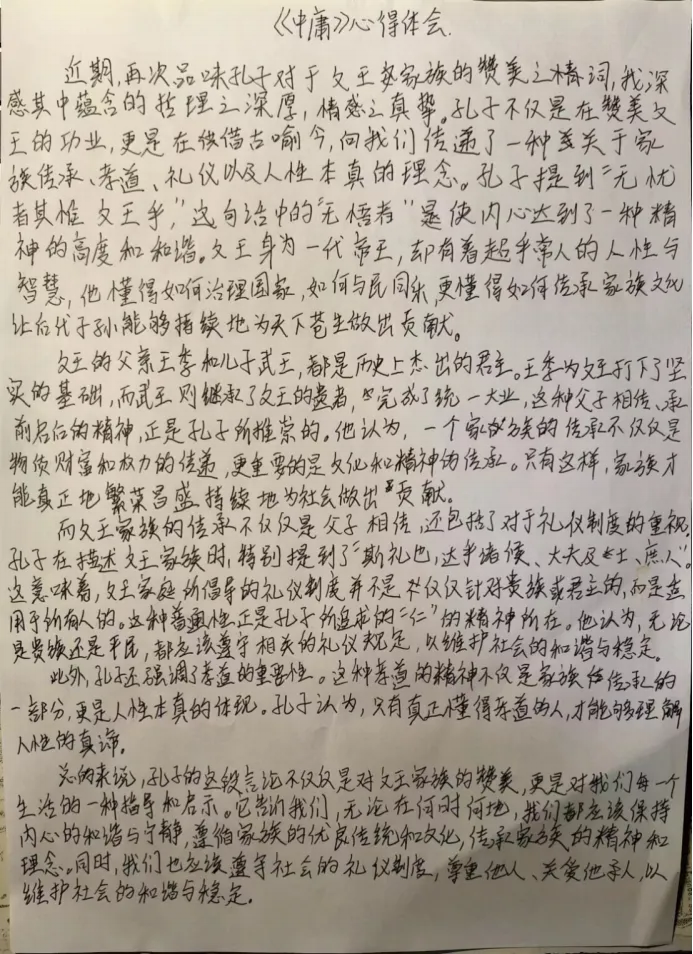 《中庸》心得体会.
近期,再次品味孔子对于文王家族的赞美之精词,我深
感其中蕴含的哲理之深厚,情感之真挚。孔子不仅是在赞美文
王的功业,更是在借古喻今,向我们传递了一种关于家
族传承、孝道、礼仪以及人性本真的理念。孔子提到“无忧
者其惟文王乎,”这句话中的“无悟者”是使内心达到了一种精
神的高度和和谐。文王身为一代帝王,却有着超乎常人的人性与
智慧,他懂得如何治理国家,如何与民同乐,更懂得如何传承家族文化
让后代子孙能够持续地为天下苍生做出贡献。
文王的父亲王季和儿子武王,都是历史上杰出的君主。王季为文王打下了坚
实的基础,而武王则继承了文王的遗者,完成了统一大业,这种父子相传、承
前启后的精神,正是孔子所推崇的。他认为,一个家族的传承不仅仅是
物质财富和权力的传递,更重要的是文化和精神的传承。只有这样,家族才
能真正地繁荣昌盛持续地为社会做出贡献。
而文王家族的传承不仅仅是父子相传,还包括了对于礼仪制度的重视.
孔子在描述文王家族时,特别提到了“斯礼也,达乎诸侯、大夫及士、庶人”。
这意味着,文王家庭所倡导的礼仪制度并不是仅仅针对贵族或君主的,而是适
用于所有人的。这种普遍性正是孔子所追求的“仁”的精神所在。他认为,无论
是贵族还是平民,都应该遵守相关的礼仪规定,以维护社会的和谐与稳定。
此外,孔子还强调了孝道的重要性。这种孝道的精神不仅是家族传承的
一部分,更是人性本真的体现。孔子认为,只有真正懂得孝道的人,才能够理解
人性的真谛。
总的来说,孔子的这段言论不仅仅是对文王家族的赞美,更是对我们每一个
生活的一种指导和启示。它告诉我们,无论在何时何地,我们都应该保持
内心的和谐与宁静,遵循家族的优良传统和文化,传承家族的精神和
理念。同时,我们也应该遵守社会的礼仪制度,尊重他人、关爱他人,以
维护社会的和谐与稳定.